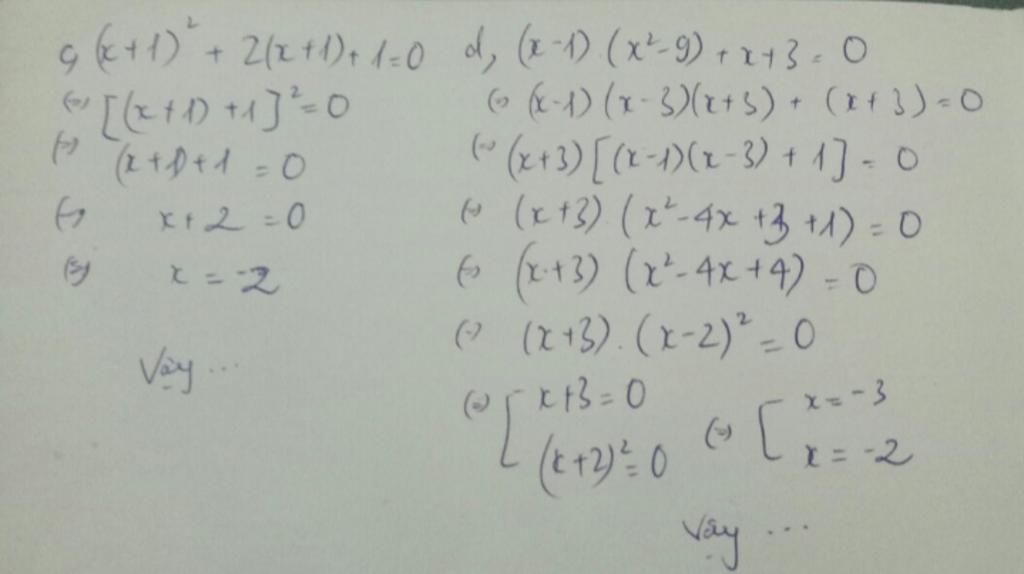 c, (x+1)² + 2(x+1)+1=0
(=) [(x+1)+1]²=0
(=) (x+1)+1 = 0
(=) x+2 = 0
(=) x = -2
Vậy ...
d, (x-1).(x²-9)+x+3=0
(=) (x-1)(x-3)(x+3) + (x+3)=0
(=) (x+3)[(x-1)(x-3)+1] = 0
(=) (x+3)(x²-4x+3+1)=0
(=) (x+3)(x²-4x+4)=0
(=) (x+3).(x-2)²=0
(=) [ x+3=0 (=) [ x=-3
(x+2)²=0 x=-2
Vậy ...